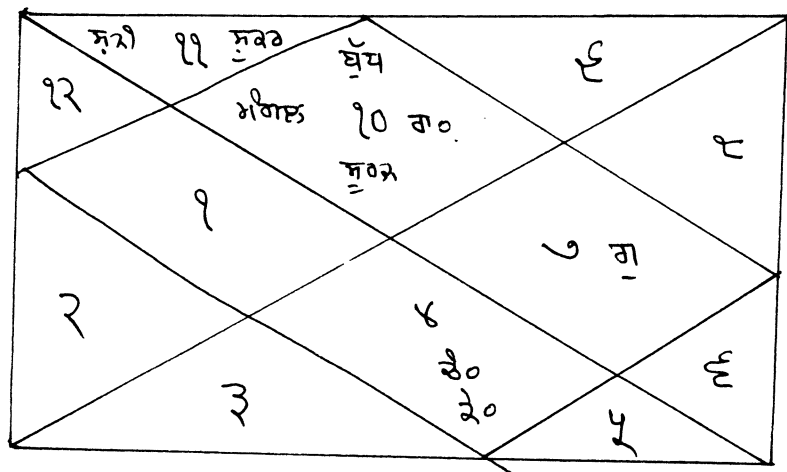 ਸ਼ਨੀ ੧੧ ਸ਼ੁਕਰ
ਬੁੱਧ
੯
੧੨
ਮੰਗਲ ੧੦ ਰਾ੦
੮
ਸੂਰਜ
੧
੭ ਗੁ
੨
੪
ਚੰ੦
ਕੇ੦
੬
੩
੫